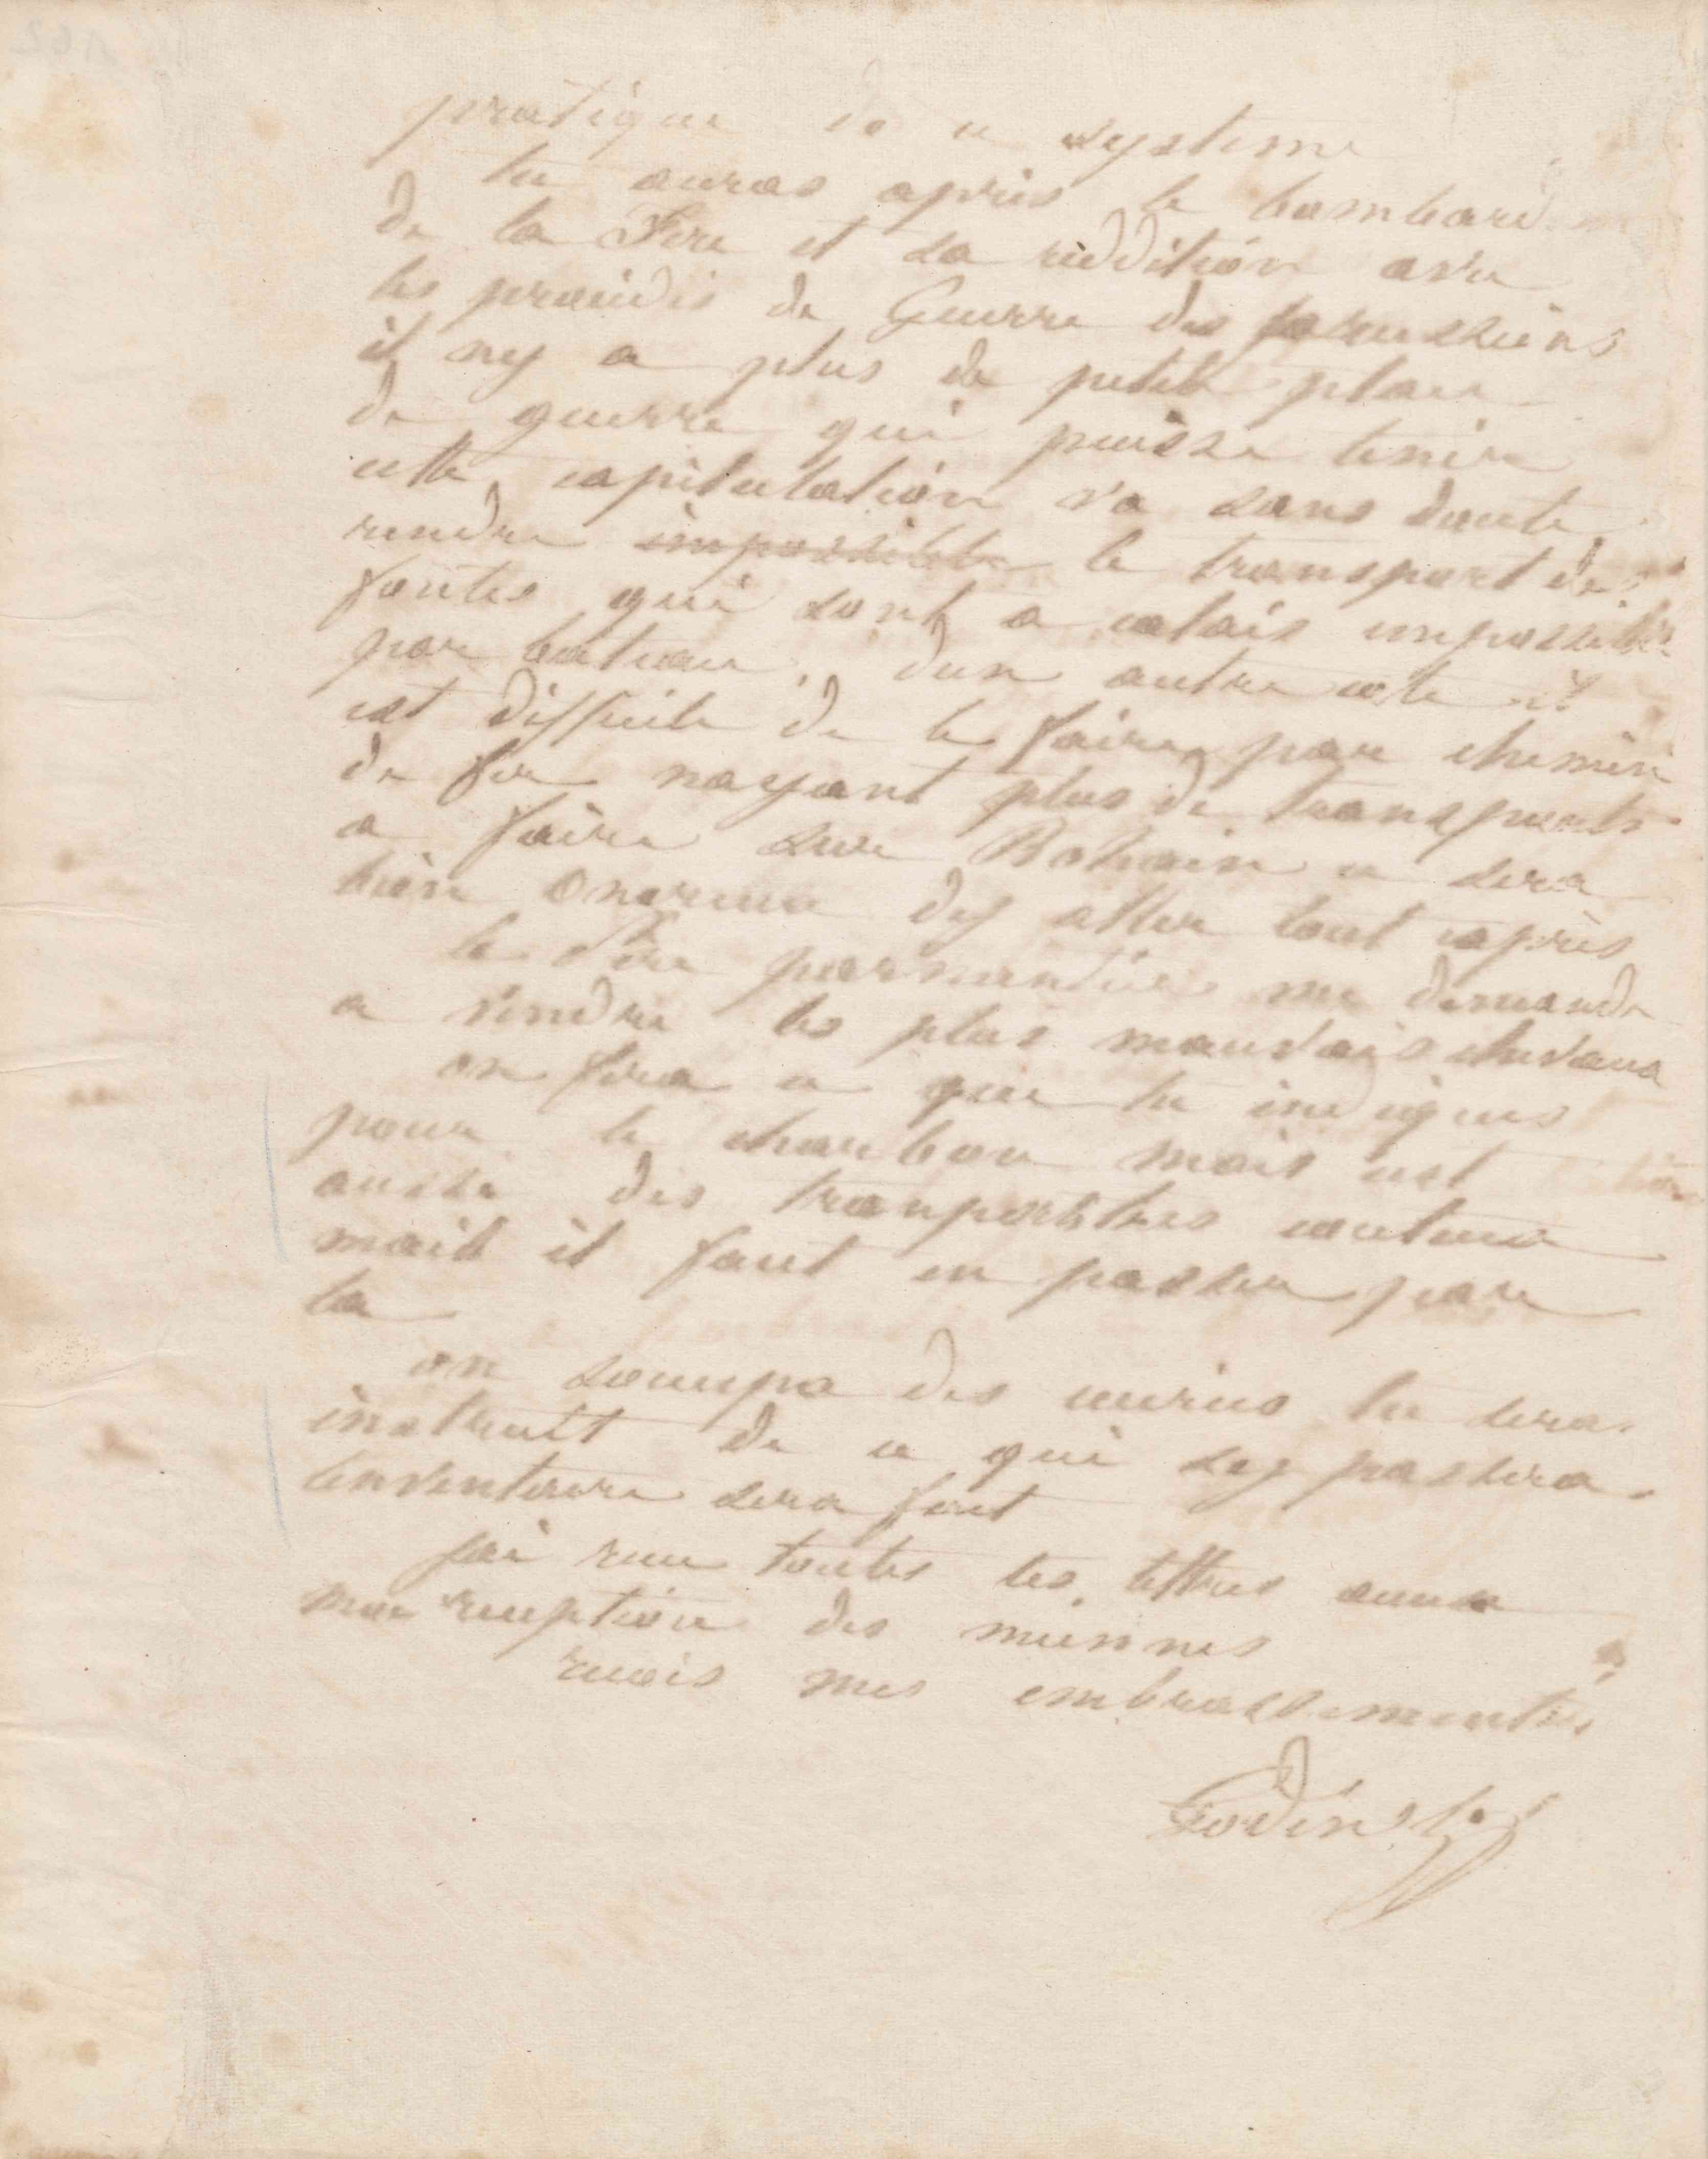 pratique de ce systeme
tu auras apris le bombard
de la Fere et sa reddition avec
les procédés de Guerre des prussiens
il ny a plus de petite place
de guerre qui puisse tenir
cette capitulation va sans doute
rendre impossible le transport des
fontes qui sont a calais impossible
par bateau. dun autre cote il
est difficile de le faire par chemin
de fer nayant plus de transports
a faire sur Bohain ce sera
bien onereux dy aller tout expres
le Pere parmentier me demande
a vendre les plus mauvais chevaux
on fera ce que tu indiques
pour le charbon mais cest
aussi des transports tres couteux
mais il faut en passer par
la
on soccupa des ecuries tu seras
instruit de ce qui sy passera.
linventaire sera fait
jai recu toutes tes lettres accuse
moi reception des miennes
recois mes embrassements
Godin